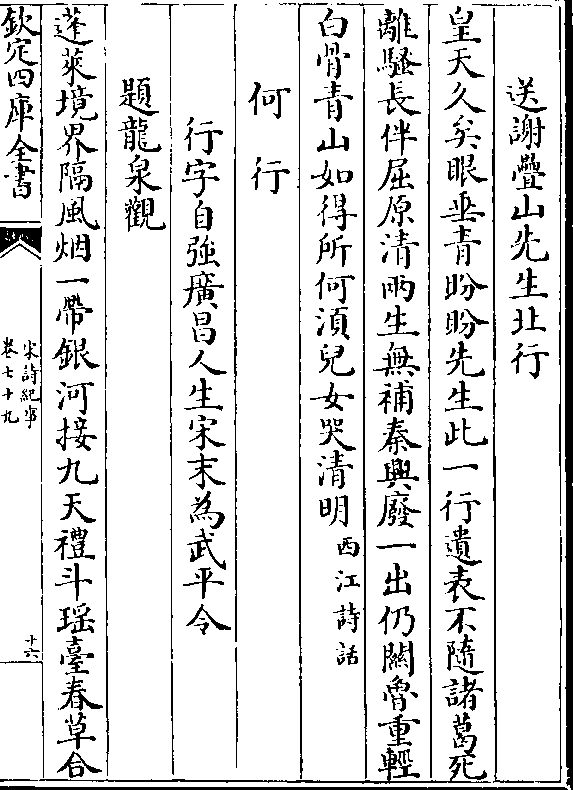 送謝疊山先生北行
皇天久矣眼垂青盼盼先生此一行遺表不隨諸葛死
離騷長伴屈原清兩生無補秦興廢一出仍關魯重輕
白骨青山如得所何湏兒女哭清明西江詩話
何行
行字自強廣昌人生宋末為武平令
題龍泉觀
蓬萊境界隔風烟一帶銀河接九天禮斗瑶臺春草合
欽定四庫全書
宋詩紀事
卷七十九
十六